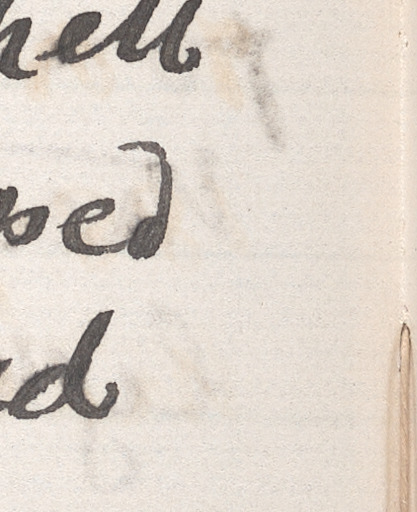 hell
sed
ed